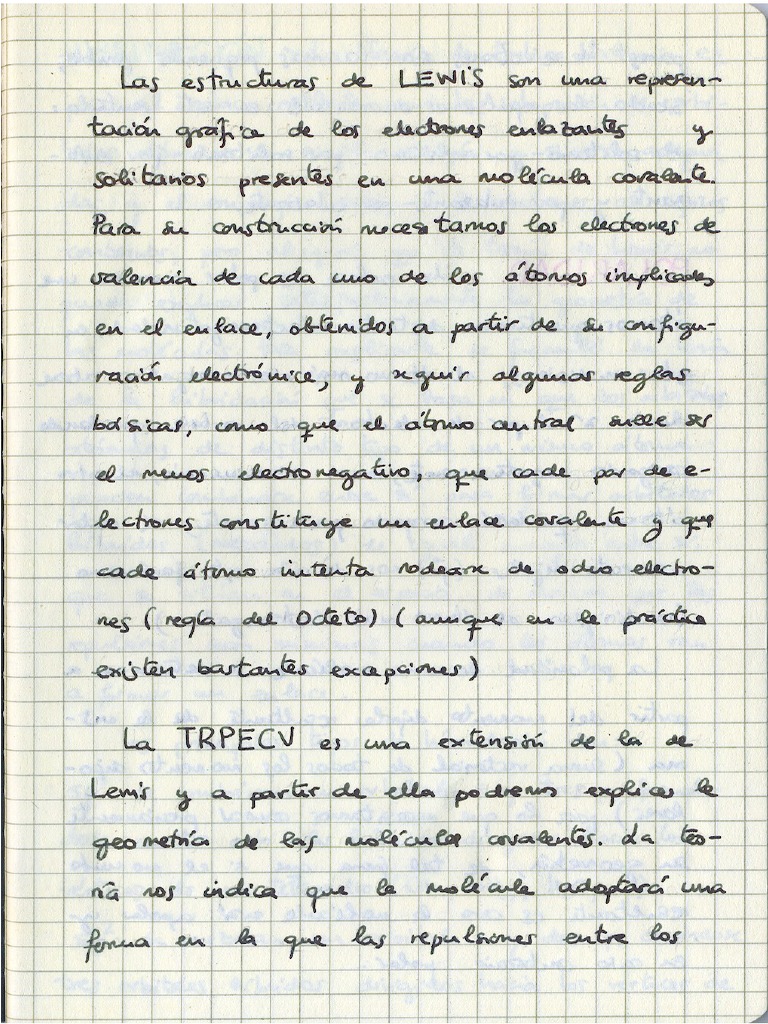 Las estructuras de LEWIS son una represen-
tación gráfica de los electrones enlazantes y
solitarios presentes en una molécula covalente.
Para su construcción necesitamos los electrones de
valencia de cada uno de los átomos implicados
en el enlace, obtenidos a partir de su configu-
ración electrónica, y seguir algunas reglas
básicas, como que el átomo central suele ser
el menos electronegativo, que cada par de e-
lectrones constituye un enlace covalente y que
cada átomo intenta rodearse de ocho electro-
nes (regla del Octeto) (aunque en la práctica
existen bastantes excepciones)
La TRPECV es una extensión de la de
Lewis y a partir de ella podremos explicar la
geometría de las moléculas covalentes. La teo-
ría nos indica que la molécula adoptará una
forma en la que las repulsiones entre los